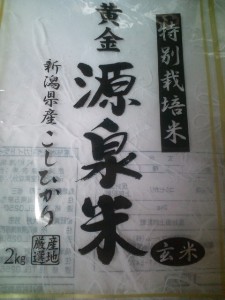 特別栽培米
黄金
源泉米
新潟県産こしひかり
産地
厳選
玄米
2kg